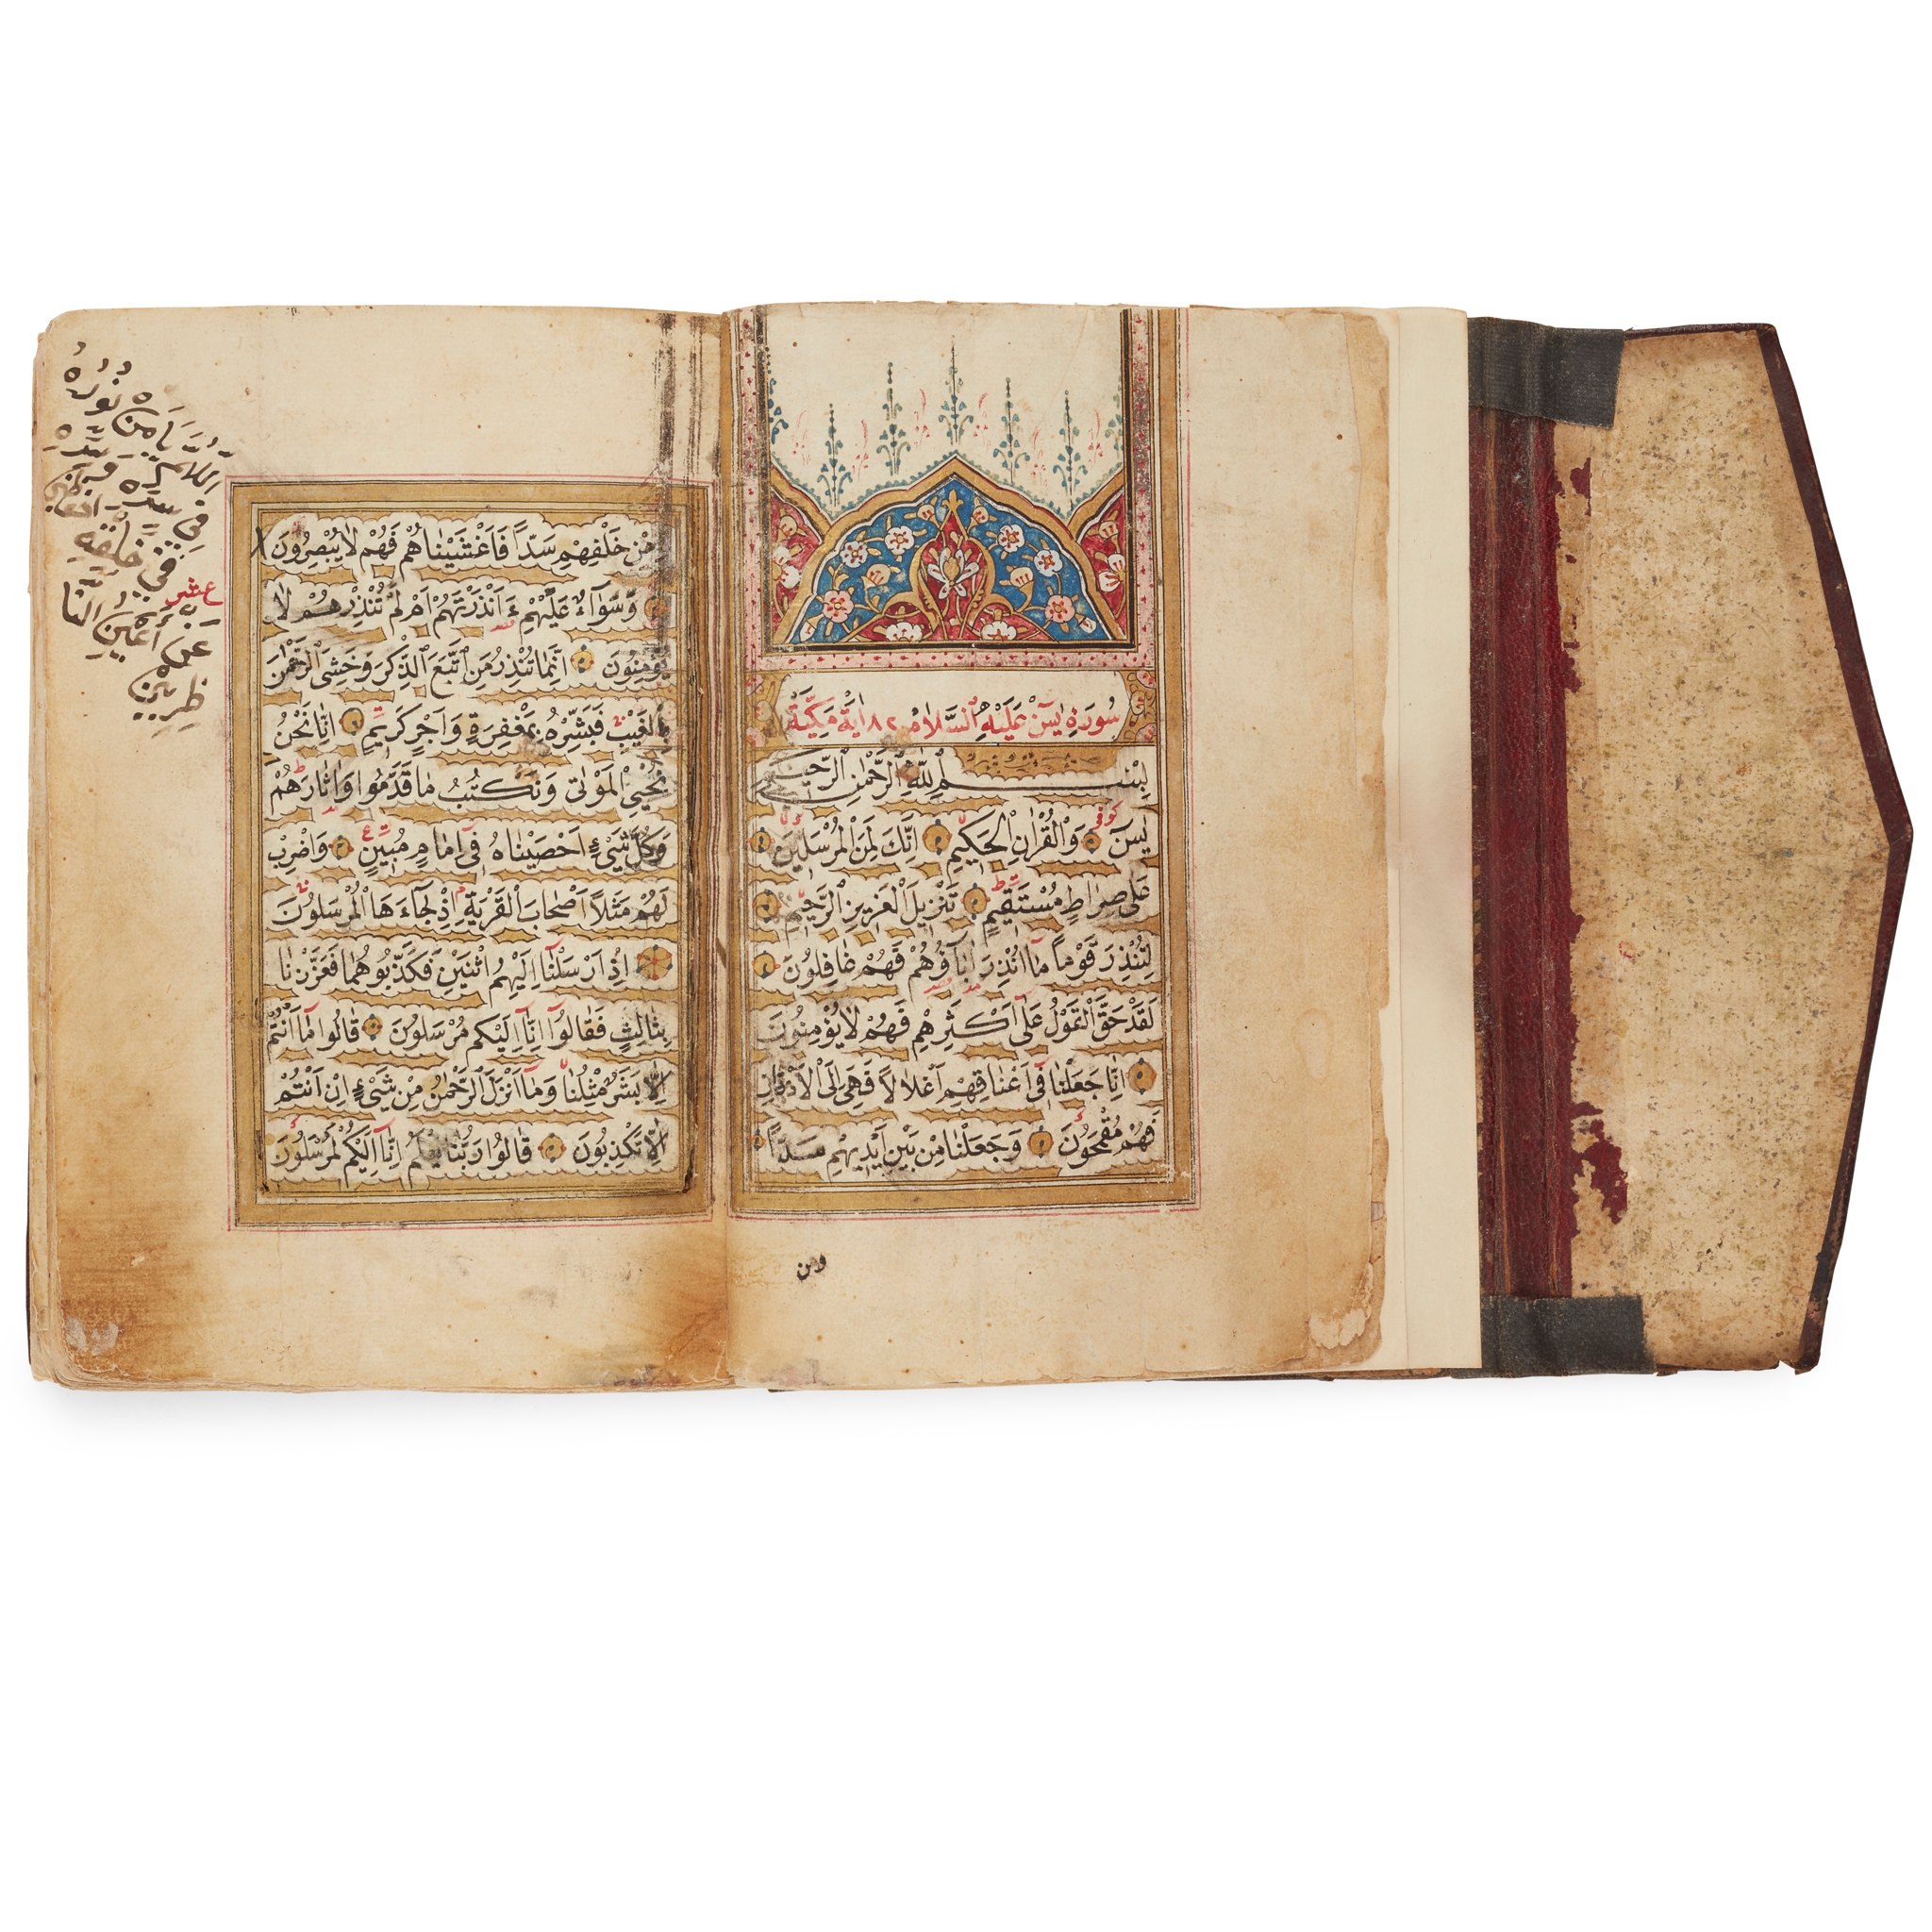 سُورَةِ يٰسۤ عَلَيْهِ السَّلَامُ ٨٢ اٰيَةً مَكِّيَّةً
بِسْمِ اللّٰهِ الرَّحْمٰنِ الرَّحِيمِ
كوفى
يٰسۤ وَالْقُرْاٰنِ الْحَكِيمِ اِنَّكَ لَمِنَ الْمُرْسَلِينَ
عَلٰى صِرَاطٍ مُسْتَقِيمٍ تَنْزِيلَ الْعَزِيزِ الرَّحِيمِ
لِتُنْذِرَ قَوْمًا مَاۤ اُنْذِرَ اٰبَاۤؤُهُمْ فَهُمْ غَافِلُونَ
لَقَدْ حَقَّ الْقَوْلُ عَلٰۤى اَكْثَرِهِمْ فَهُمْ لَا يُؤْمِنُونَ
اِنَّا جَعَلْنَا فِۤى اَعْنَاقِهِمْ اَغْلَالًا فَهِىَ اِلَى الْاَذْقَانِ
فَهُمْ مُقْمَحُونَ وَجَعَلْنَا مِنْ بَيْنِ اَيْدِيهِمْ سَدًّا
ومن
وَمِنْ خَلْفِهِمْ سَدًّا فَاَغْشَيْنَاهُمْ فَهُمْ لَا يُبْصِرُونَ
وَسَوَاۤءٌ عَلَيْهِمْ ءَاَنْذَرْتَهُمْ اَمْ لَمْ تُنْذِرْهُمْ لَا
يُؤْمِنُونَ اِنَّمَا تُنْذِرُ مَنِ اتَّبَعَ الذِّكْرَ وَخَشِىَ الرَّحْمٰنَ
بِالْغَيْبِ فَبَشِّرْهُ بِمَغْفِرَةٍ وَاَجْرٍ كَرِيمٍ اِنَّا نَحْنُ
نُحْيِى الْمَوْتٰى وَنَكْتُبُ مَا قَدَّمُوا وَاٰثَارَهُمْ
وَكُلَّ شَىْءٍ اَحْصَيْنَاهُ فِۤى اِمَامٍ مُبِينٍ وَاضْرِبْ
لَهُمْ مَثَلًا اَصْحَابَ الْقَرْيَةِ اِذْ جَاۤءَهَا الْمُرْسَلُونَ
اِذْ اَرْسَلْنَاۤ اِلَيْهِمُ اثْنَيْنِ فَكَذَّبُوهُمَا فَعَزَّزْنَا
بِثَالِثٍ فَقَالُوۤا اِنَّاۤ اِلَيْكُمْ مُرْسَلُونَ قَالُوا مَاۤ اَنْتُمْ
اِلَّا بَشَرٌ مِثْلُنَا وَمَاۤ اَنْزَلَ الرَّحْمٰنُ مِنْ شَىْءٍ اِنْ اَنْتُمْ
اِلَّا تَكْذِبُونَ قَالُوا رَبُّنَا يَعْلَمُ اِنَّاۤ اِلَيْكُمْ لَمُرْسَلُونَ
اللَّهُمَّ يَا مَنْ نُورُهُ
فِي سِرِّهِ وَسِرُّهُ
فِي خَلْقِهِ
عشر
عَنْ أَعْيُنِ النَّا
ظِرِينَ